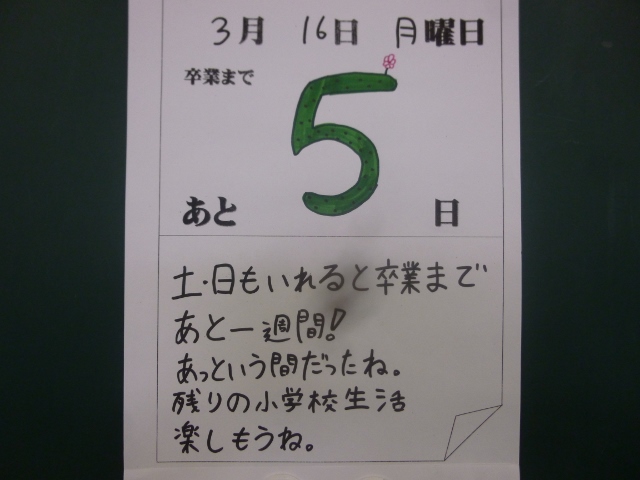 3月 16日 月曜日
卒業まで
5
あと 日
土・日もいれると卒業まで
あと一週間!
あっという間だったね。
残りの小学校生活
楽しもうね。